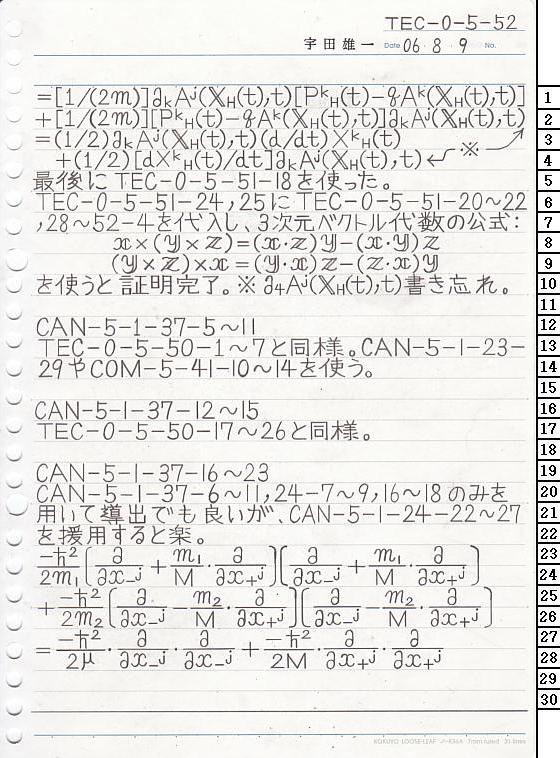 TEC-0-5-52
宇田雄一 Date 06・8・9 No.
=[1/(2m)]∂ₖAʲ(𝕏_H(t),t)[Pᵏ_H(t)-qAᵏ(𝕏_H(t),t)]
+[1/(2m)][Pᵏ_H(t)-qAᵏ(𝕏_H(t),t)]∂ₖAʲ(𝕏_H(t),t)
=(1/2)∂ₖAʲ(𝕏_H(t),t)(d/dt)Xᵏ_H(t)
+(1/2)[dXᵏ_H(t)/dt]∂ₖAʲ(𝕏_H(t),t)↙※↗
最後にTEC-0-5-51-18を使った。
TEC-0-5-51-24,25にTEC-0-5-51-20～22
,28～52-4を代入し、3次元ベクトル代数の公式:
𝕩×(𝕪×𝕫)=(𝕩·𝕫)𝕪-(𝕩·𝕪)𝕫
(𝕪×𝕫)×𝕩=(𝕪·𝕩)𝕫-(𝕫·𝕩)𝕪
を使うと証明完了。※∂₄Aʲ(𝕏_H(t),t)書き忘れ。
CAN-5-1-37-5～11
TEC-0-5-50-1～7と同様。CAN-5-1-23-
29やCOM-5-41-10～14を使う。
CAN-5-1-37-12～15
TEC-0-5-50-17～26と同様。
CAN-5-1-37-16～23
CAN-5-1-37-6～11,24-7～9,16～18のみを
用いて導出でも良いが、CAN-5-1-24-22～27
を援用すると楽。
-ħ²/2m₁[∂/∂x₋ʲ+m₁/M·∂/∂x₊ʲ][∂/∂x₋ʲ+m₁/M·∂/∂x₊ʲ]
+-ħ²/2m₂[∂/∂x₋ʲ-m₂/M·∂/∂x₊ʲ][∂/∂x₋ʲ-m₂/M·∂/∂x₊ʲ]
=-ħ²/2μ·∂/∂x₋ʲ·∂/∂x₋ʲ+-ħ²/2M·∂/∂x₊ʲ·∂/∂x₊ʲ
KOKUYO LOOSE-LEAF ノ-836A 7mm ruled 31 lines
1
2
3
4
5
6
7
8
9
10
11
12
13
14
15
16
17
18
19
20
21
22
23
24
25
26
27
28
29
30